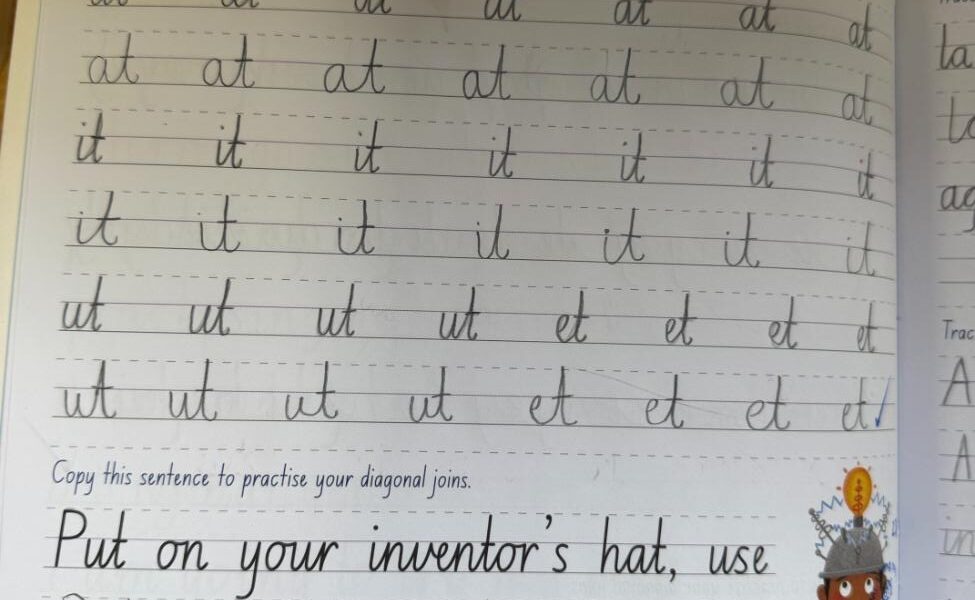 at at at at at at at
at at at at at at at
it it it it it it it
it it it it it it it
ut ut ut ut et et et et
ut ut ut ut et et et et
Copy this sentence to practise your diagonal joins.
Put on your inventor's hat, use
ta
Trac
A
A
in